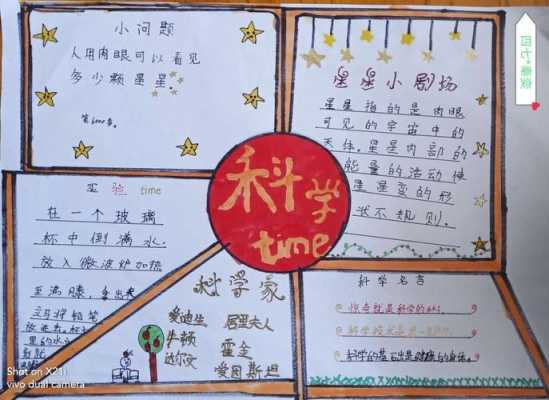 小问题
人用肉眼可以看见
多少颗星星.
星星小剧场
星星指的是肉眼
可见的宇宙中的
天体.星星内部的
能量的活动使
星星变的形
状不规则.
科学
time
实验time
在一个玻璃
杯中倒满水.
放入微波炉加热
至沸腾,拿出来
科学家
爱迪生 居里夫人
牛顿 霍金
达尔文 爱因斯坦
科学名言
惊奇就是科学的
科学的基石出是健康的身体.
四七
Shot on X21i
vivo dual camera